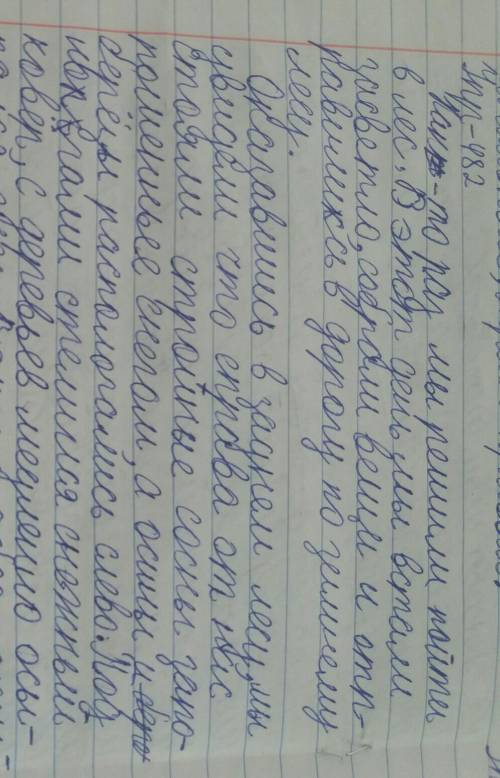 Упр-482
Как-то раз мы решили пойти
в лес. В этот день мы встали
засветло, собрали вещи и отп-
равились в дорогу по зимнему
лесу.
Оказавшись в заднем лесу, мы
увидели что справа от нас
стояли стройные сосны запо-
рошенные снегом, а осины и
берёзы распологались слева. Под
ногами стелился снежный
ковер, с деревьев медленно осы-